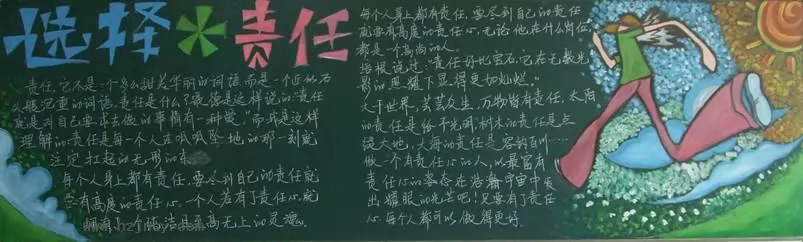 选择*责任
责任,它不是一个多么甜美华丽的词语,而是一个近似石
头艇沉重的词语,责任是什么?歌德是这样说的:"责任
就是对自己要求去做的事情有一种爱。"而我是这样
理解的:责任是每一个人在呱呱坠地的那一刻就
注定扛起的无形的
每个人身上都有责任,要尽到自己的责任就
要有高度的责任心。一个人若有了责任心,就
拥有了至高无上的灵魂。
每个人身上都有责任,要尽到自己的责任
就要有高度的责任心,无论他在什么岗位,
都是一个高尚的人。
培根说过:"责任好比宝石,它在无数光
影的照耀下显得更加灿烂。"
大千世界,芸芸众生,万物皆有责任,太阳
的责任是给予光明,树木的责任是点
绕大地,大海的责任是容纳百川……
做一个有责任心的人,以最富有
责任心的姿态在浩瀚宇宙中发
出耀眼的光芒吧!只要有了责任
心,每个人都可以做得更好。